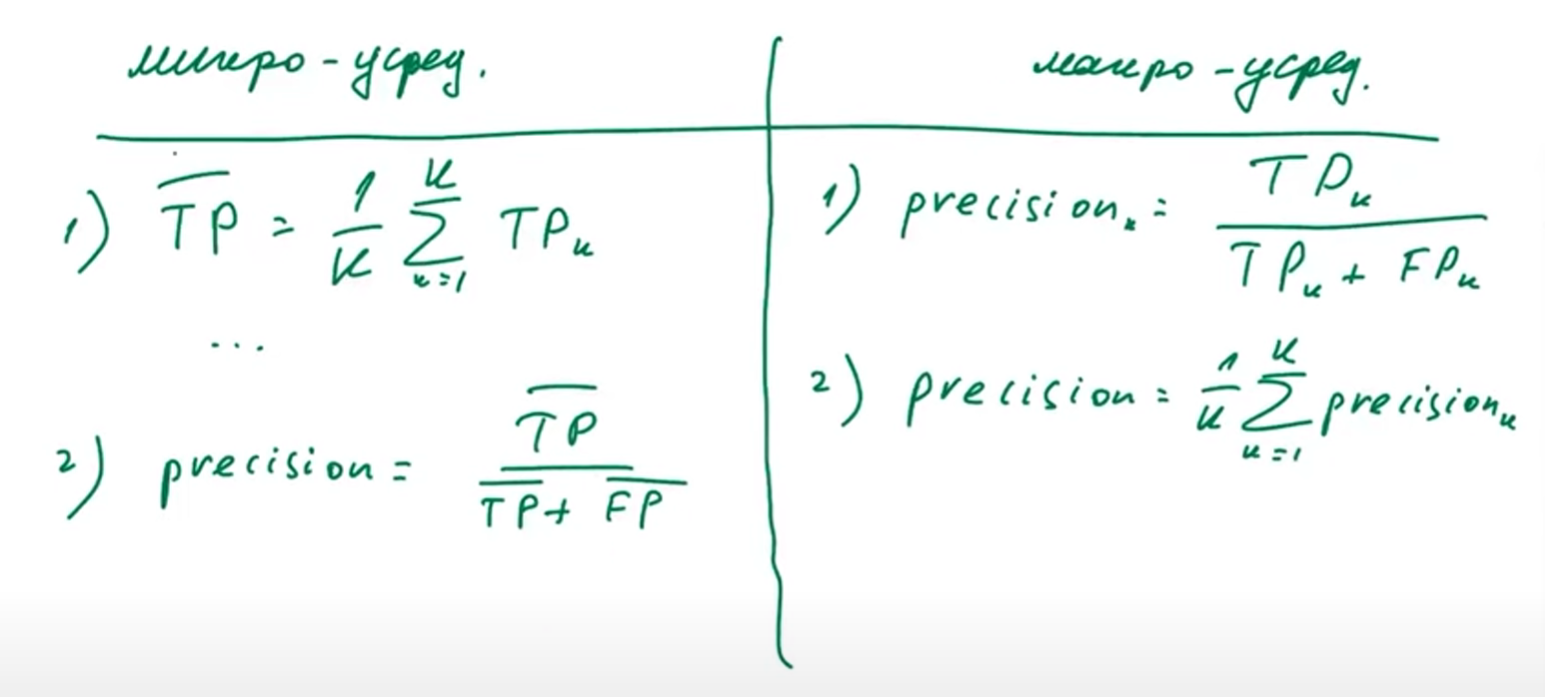 микро-усред.
1) T̅P̅ = 1/K ∑ₖ₌₁ᴷ TPₖ
...
2) precision = T̅P̅ / (T̅P̅ + F̅P̅)
макро-усред.
1) precisionₖ = TPₖ / (TPₖ + FPₖ)
2) precision = 1/K ∑ₖ₌₁ᴷ precisionₖ